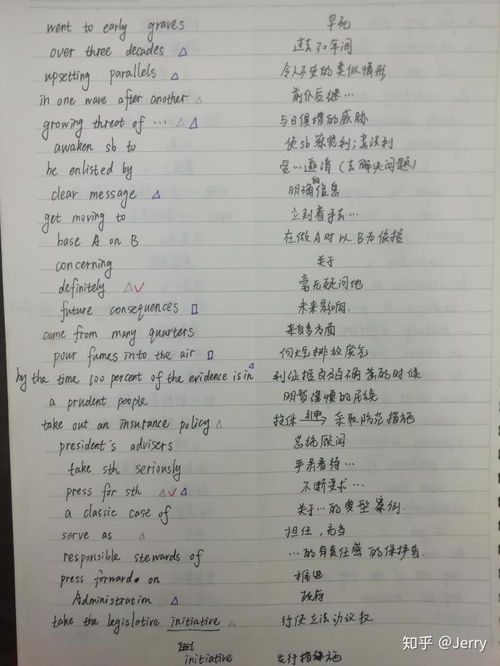 went to early graves 早死
over three decades 过去30年间
upsetting parallels 令人不安的类似情形
in one wave after another 前仆后继…
growing threat of … 与日俱增的威胁
awaken sb to 使sb察觉到；意识到
be enlisted by 受…邀请（去解决问题）
clear message 明确的信息
get moving to 立刻着手去…
base A on B 在做A时以B为依据
concerning 关于
definitely 毫无疑问地
future consequences 未来影响
come from many quarters 来自多方面
pour fumes into the air 向大气排放废气
by the time 100 percent of the evidence is in 到证据百分百确凿的时候
a prudent people 明智谨慎的民族
take out an insurance policy 投保 引申 采取防范措施
president's advisers 总统顾问
take sth seriously 严肃看待…
press for sth 不断要求…
a classic case of 关于…的典型案例.
serve as 担任，充当
responsible stewards of …的有责任感的保护者.
press forward on 推进
Administration 政府
take the legislative initiative 行使立法动议权
initiative 先行措施
知乎 @Jerry